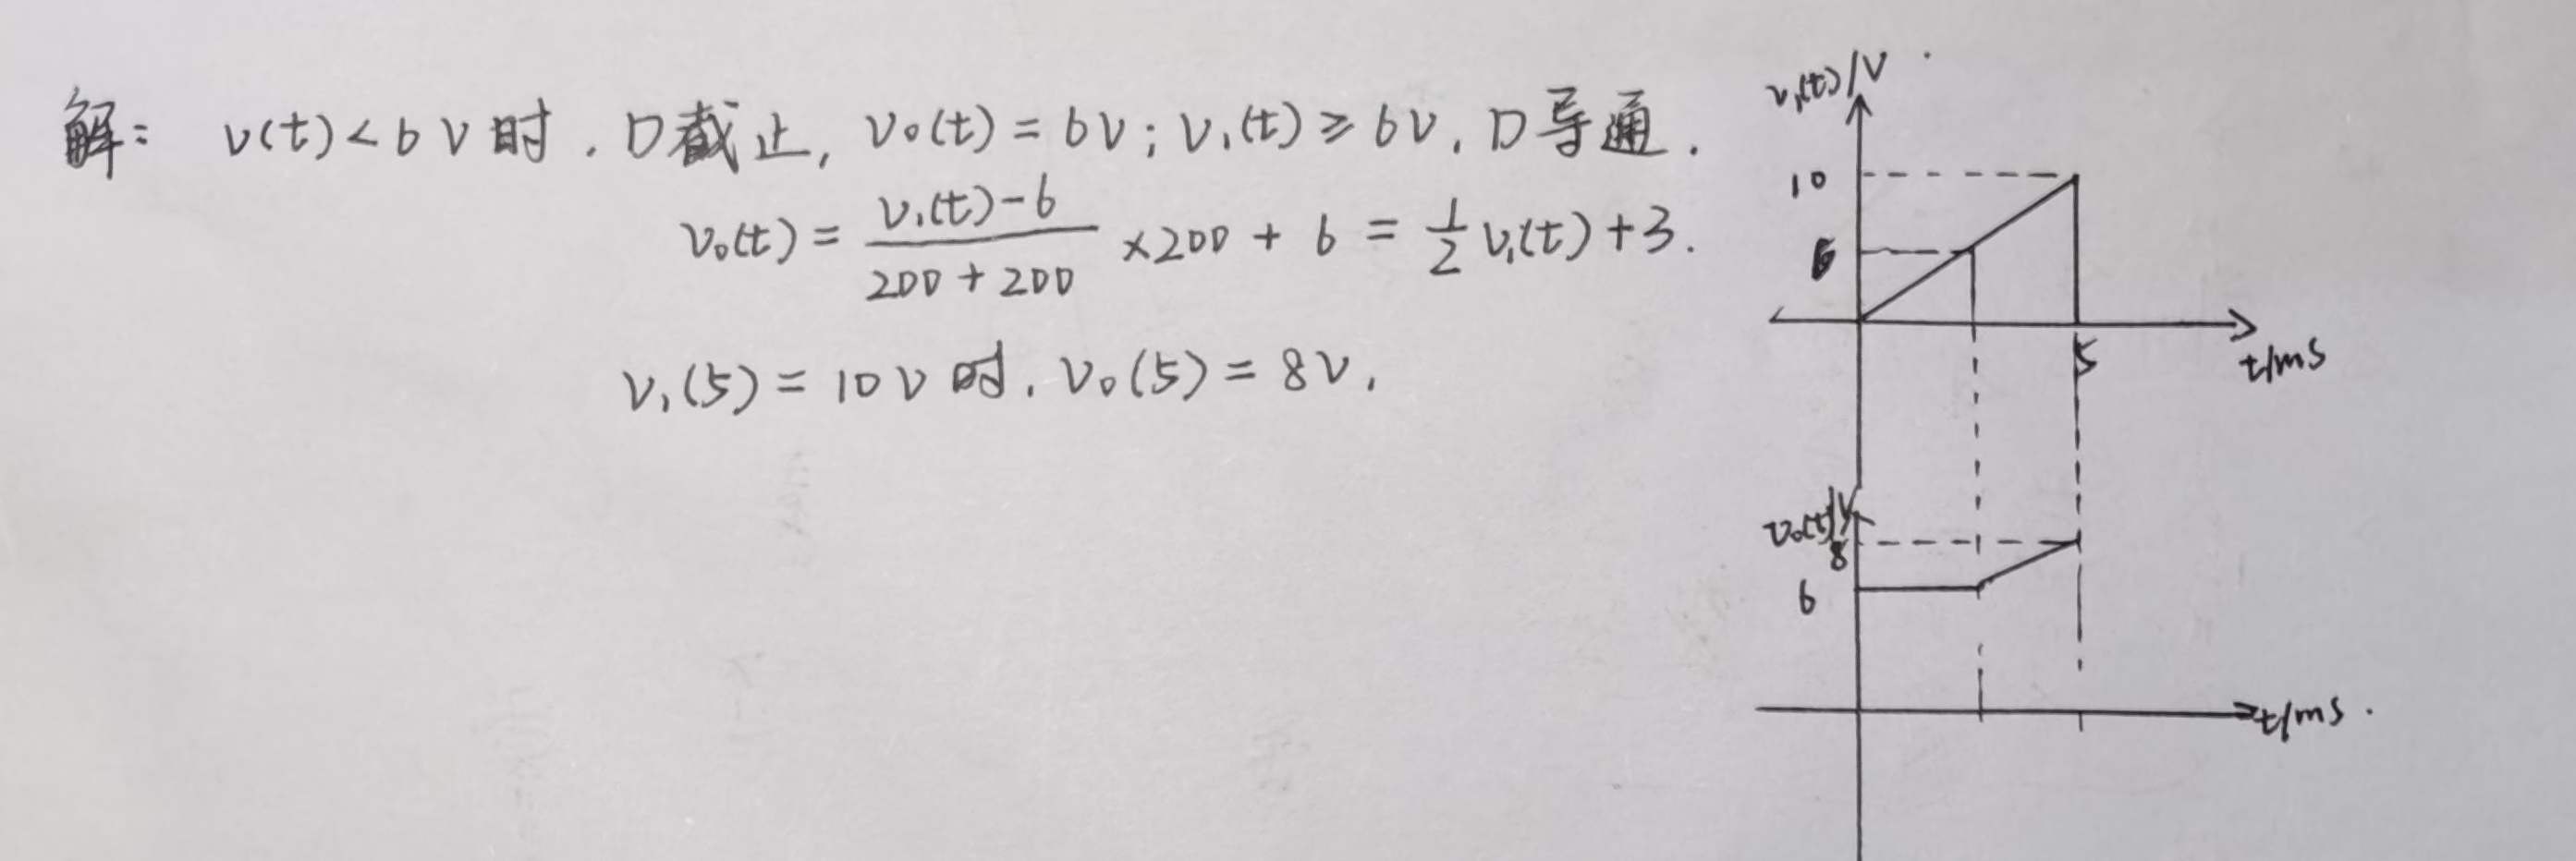 解: v(t)<6V时.D截止,v₀(t)=6V;v₁(t)≥6V,D导通.
v₀(t)=\frac{v₁(t)-6}{200+200}×200+6=\frac{1}{2}v₁(t)+3.
v₁(5)=10V时,v₀(5)=8V,
v₁(t)/V
10
6
5
t/ms
v₀(t)/V
8
6
t/ms.